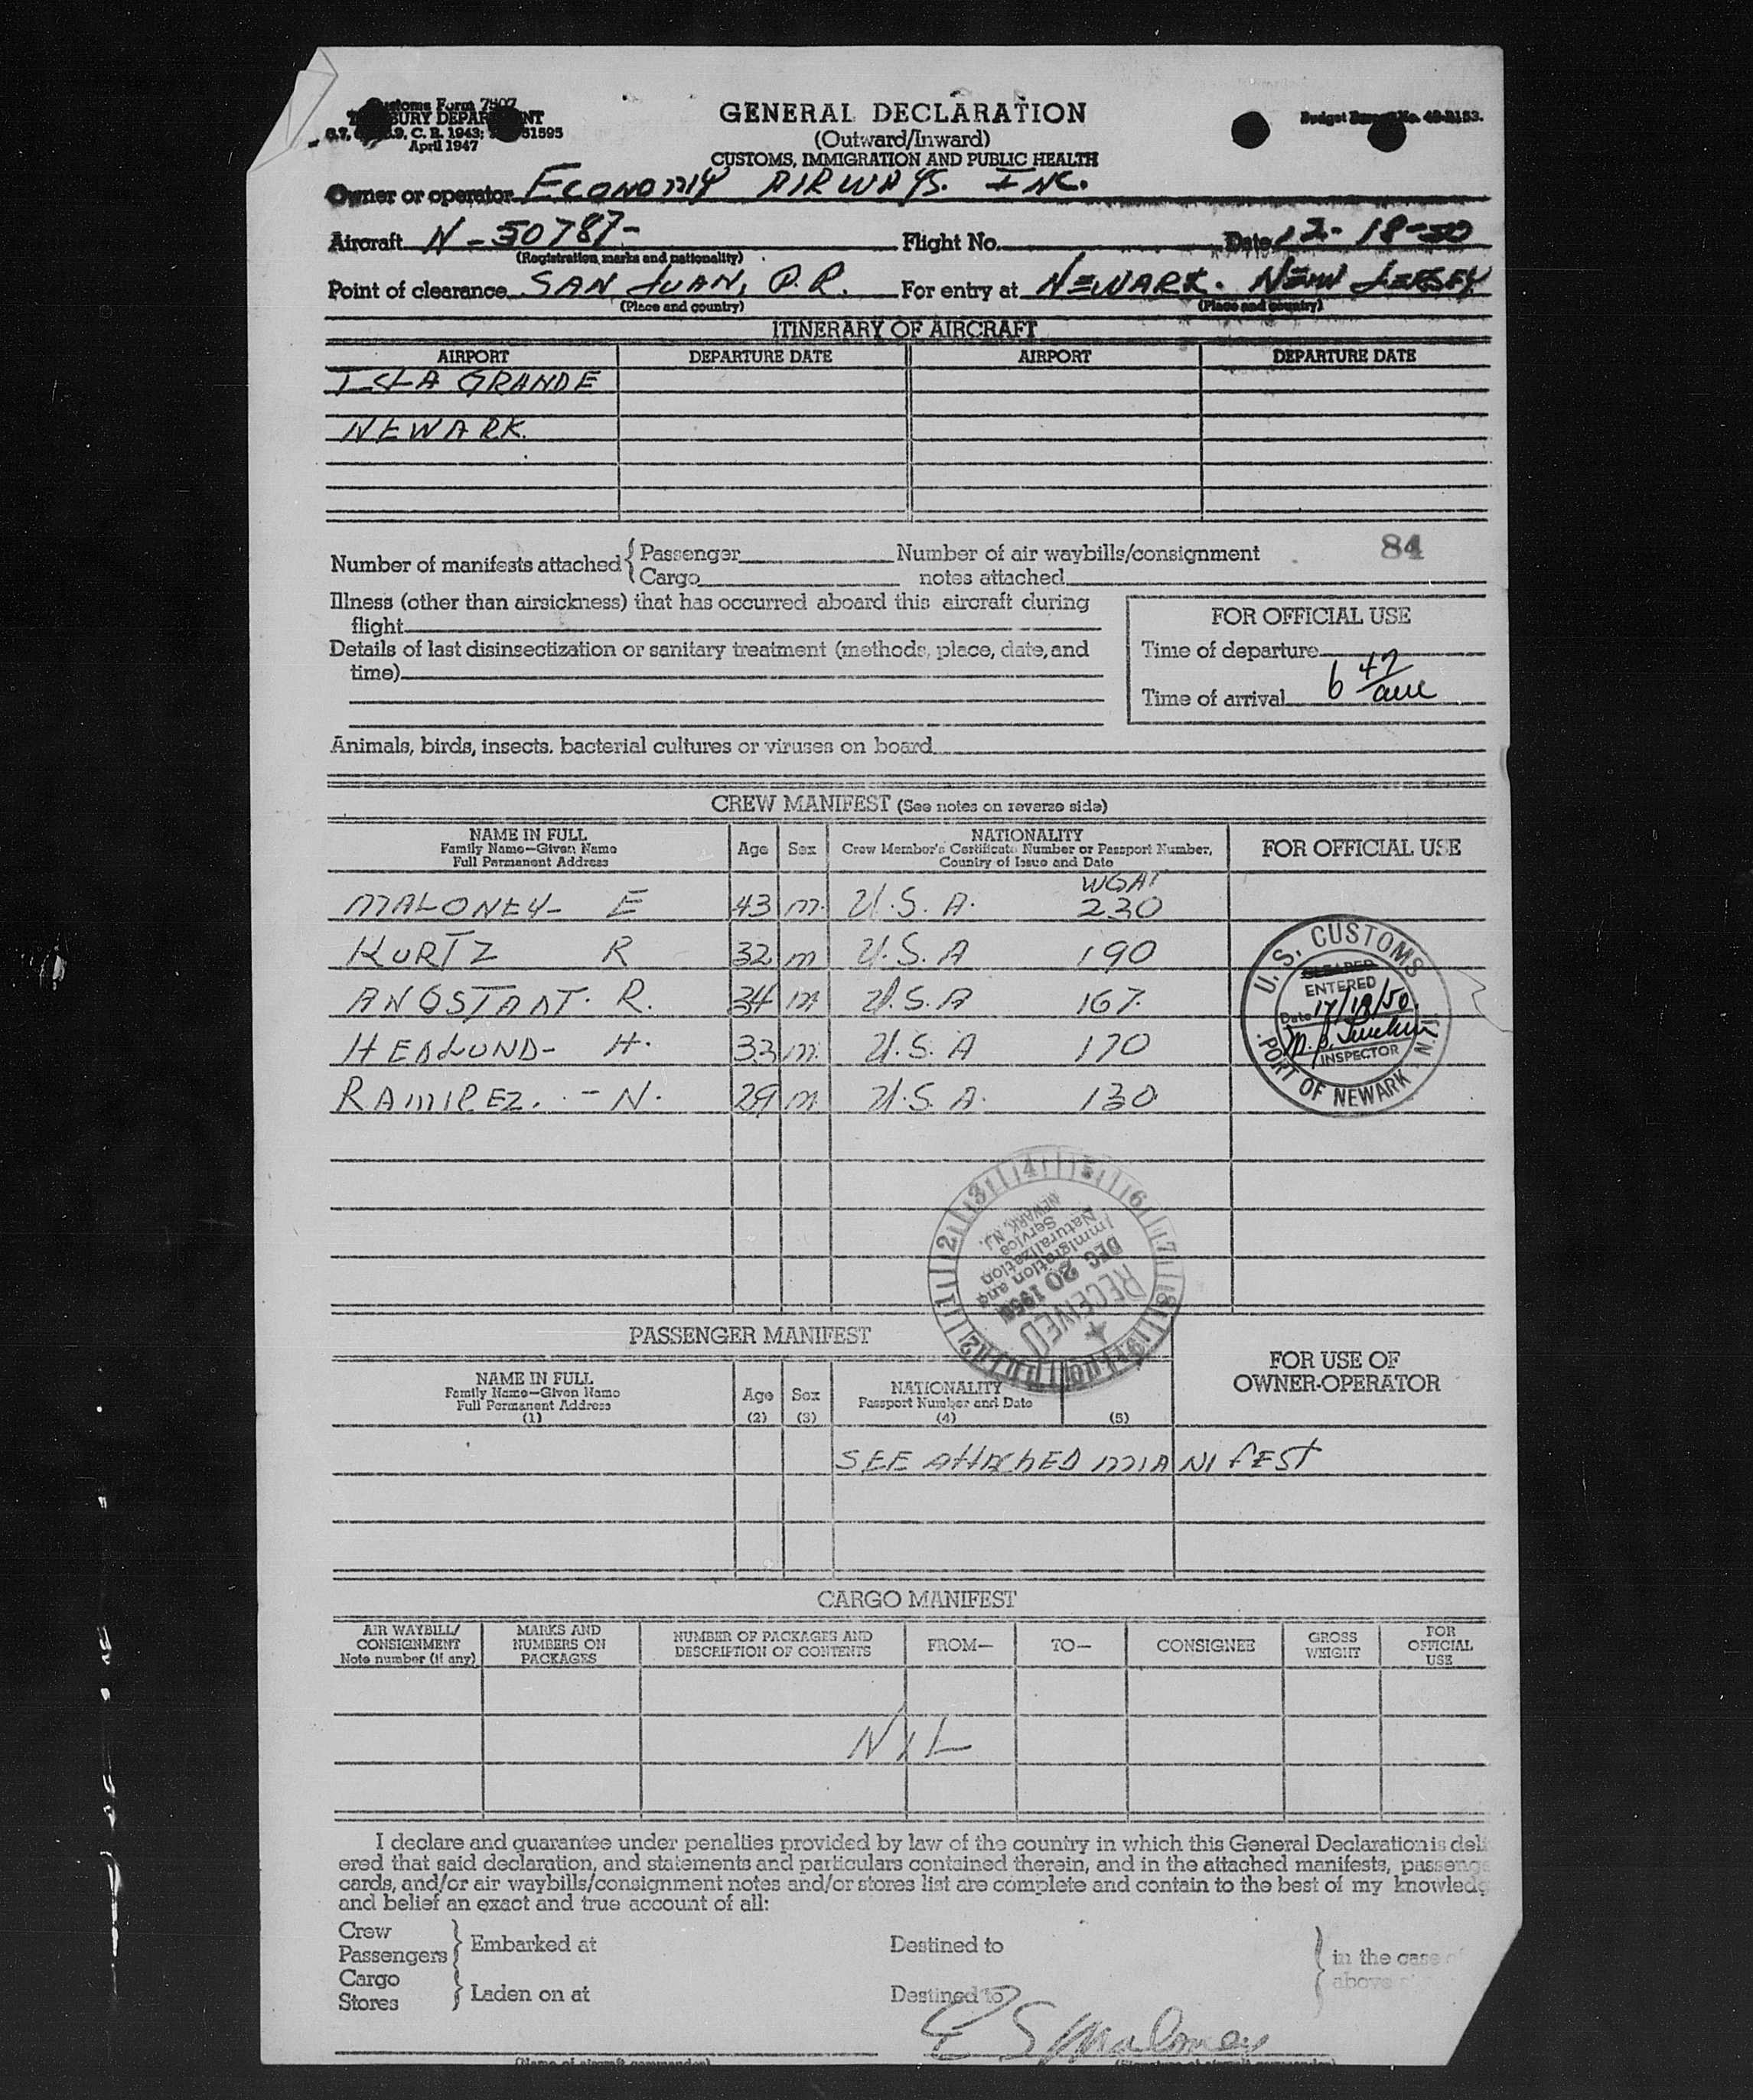 Customs Form 7507
GENERAL DECLARATION
(Outward/Inward)
April 1947
CUSTOMS, IMMIGRATION AND PUBLIC HEALTH
Owner or operator ECONOMY AIRWAYS. INC.
Aircraft N-50787- Flight No. Date 12-18-50
(Registration marks and nationality)
Point of clearance SAN JUAN, P.R. For entry at NEWARK. NEW JERSEY
(Place and country) (Place and country)
ITINERARY OF AIRCRAFT
AIRPORT DEPARTURE DATE AIRPORT DEPARTURE DATE
ISLA GRANDE
NEWARK.
84
Number of manifests attached { Passenger Number of air waybills/consignment
Cargo notes attached
Illness (other than airsickness) that has occurred aboard this aircraft during
flight
FOR OFFICIAL USE
Details of last disinsectization or sanitary treatment (methods, place, date, and
time)
Time of departure
Time of arrival 6 47/am
Animals, birds, insects. bacterial cultures or viruses on board
CREW MANIFEST (See notes on reverse side)
NAME IN FULL Age Sex NATIONALITY FOR OFFICIAL USE
Family Name—Given Name Crew Member's Certificate Number or Passport Number,
Full Permanent Address Country of Issue and Date
WGHT
MALONEY- E 43 m. U.S.A. 230
KURTZ R 32 m U.S.A 190
ANGSTADT. R. 34 m U.S.A 167.
HEDLUND- H. 33 m. U.S.A 170
RAMIREZ. - N. 29 m U.S.A. 130
U. S. CUSTOMS
CLEARED
ENTERED
Date
INSPECTOR
PORT OF NEWARK N.J.
1 2 3 4 5 6 7 8 9 10 11 12
RECEIVED
DEC 20 1950
Immigration and
Naturalization
Service
NEWARK, N.J.
PASSENGER MANIFEST
NAME IN FULL Age Sex NATIONALITY FOR USE OF
Family Name—Given Name Passport Number and Date OWNER-OPERATOR
Full Permanent Address
(1) (2) (3) (4) (5)
SEE AttAchED MANIfEST
CARGO MANIFEST
AIR WAYBILL/ CONSIGNMENT Note number (if any) MARKS AND NUMBERS ON PACKAGES NUMBER OF PACKAGES AND DESCRIPTION OF CONTENTS FROM— TO— CONSIGNEE GROSS WEIGHT FOR OFFICIAL USE
NIL
I declare and guarantee under penalties provided by law of the country in which this General Declaration is deli
ered that said declaration, and statements and particulars contained therein, and in the attached manifests, passeng
cards, and/or air waybills/consignment notes and/or stores list are complete and contain to the best of my knowledg
and belief an exact and true account of all:
Crew
Passengers } Embarked at Destined to } in the case of
Cargo above
Stores } Laden on at Destined to
E S Maloney
(Name of aircraft commander) (Signature of aircraft commander)